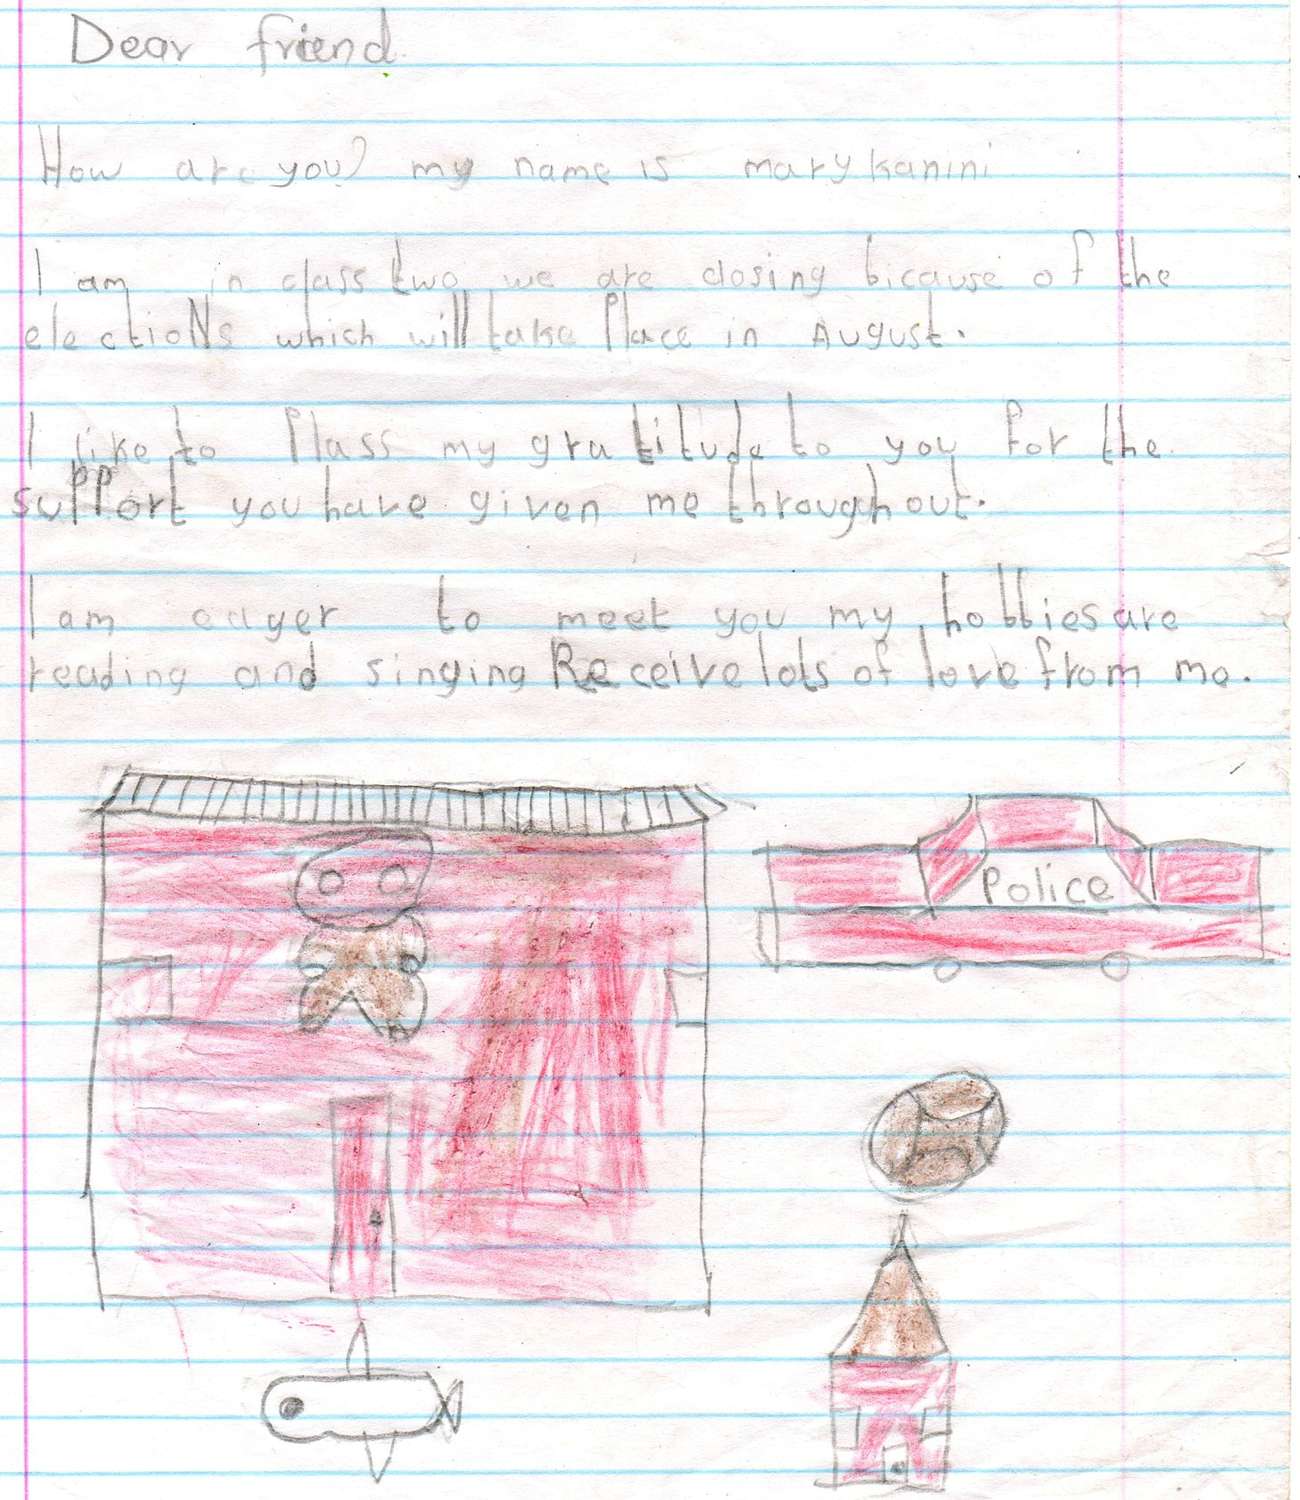 Dear friend
How are you? my name is mary kanini
I am in class two we are closing bicause of the
electioNs which will take Place in August.
I like to Plass my gratitude to you for the
pp
support you have given me throughout.
I am eager to meet you my hobbies are
reading and singing Receive lots of love from me.
Police